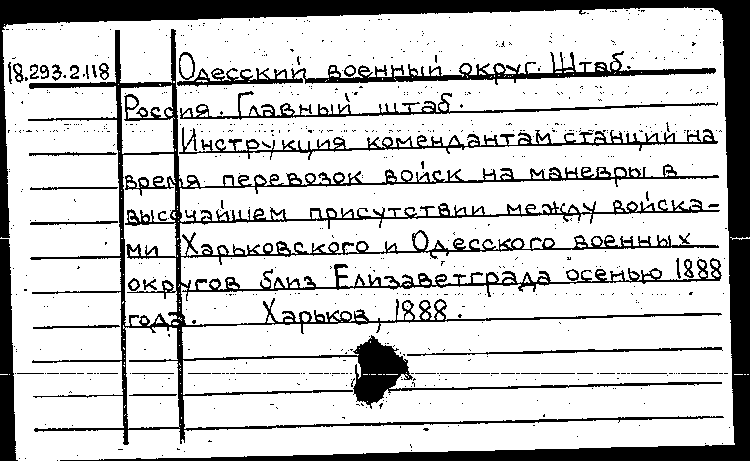 18.293.2.118
Одесский военный округ. Штаб.
Россия. Главный штаб.
Инструкция комендантам станций на
время перевозок войск на маневры в
высочайшем присутствии между войска-
ми Харьковского и Одесского военных
округов близ Елизаветграда осенью 1888
года. Харьков, 1888.